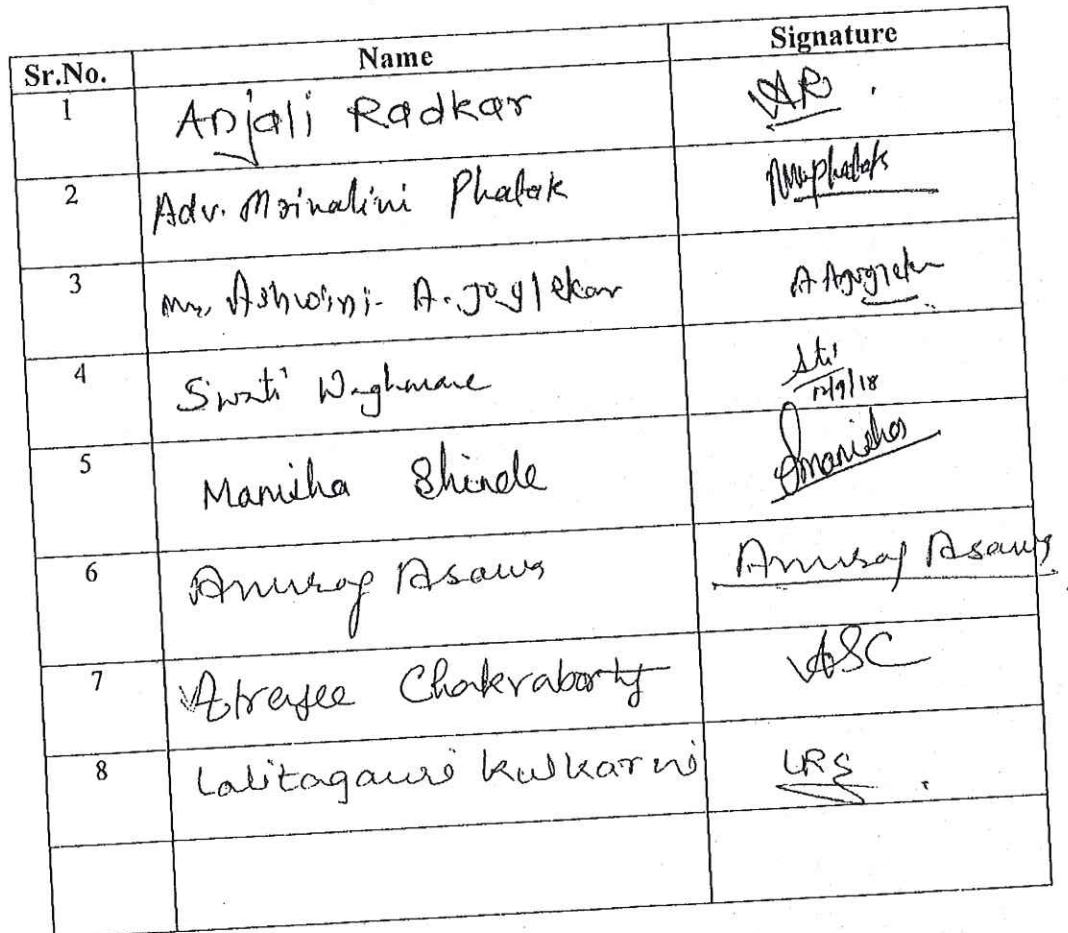 Sr.No. Name Signature
1 Anjali Radkar AR.
2 Adv. Mrinalini Phatak MMPhatak
3 Mrs. Ashwini. A. Joglekar
4 Swati Waghmare
12/9/18
5 Manisha Shinde Smanisha
6 Anurag Asawa Anurag Asawa
7 Atreyee Chakraborty ASC
8 Lalitagauri Kulkarni